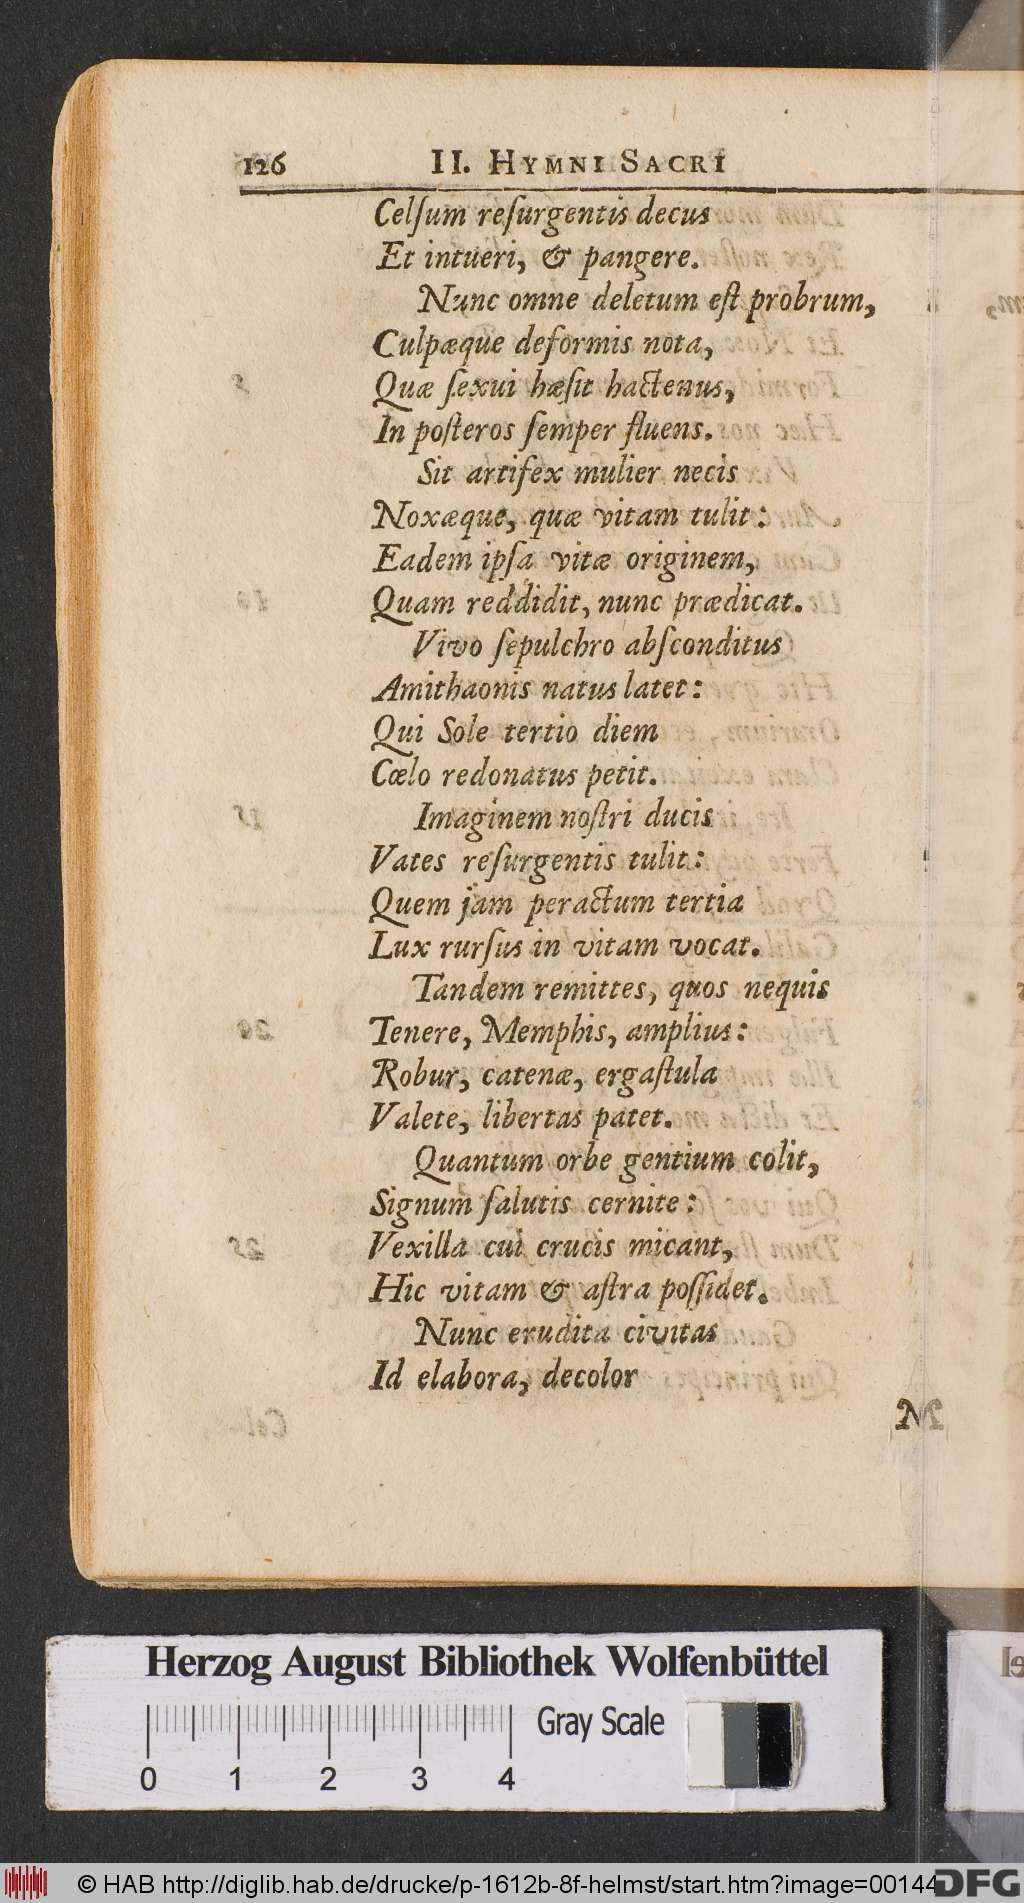 126 II. HYMNI SACRI
Celſum reſurgentis decus
Et intueri, & pangere.
Nunc omne deletum eſt probrum,
Culpæque deformis nota,
Quæ ſexui hæſit hactenus,
In poſteros ſemper fluens.
Sit artifex mulier necis
Noxæque, quæ vitam tulit:
Eadem ipſa vitæ originem,
Quam reddidit, nunc prædicat.
Vivo ſepulchro abſconditus
Amithaonis natus latet:
Qui Sole tertio diem
Cœlo redonatus petit.
Imaginem noſtri ducis
Vates reſurgentis tulit:
Quem jam peractum tertia
Lux rurſus in vitam vocat.
Tandem remittes, quos nequis
Tenere, Memphis, amplius:
Robur, catenæ, ergaſtula
Valete, libertas patet.
Quantum orbe gentium colit,
Signum ſalutis cernite:
Vexilla cui crucis micant,
Hic vitam & aſtra poſſidet.
Nunc erudita civitas
Id elabora, decolor
M
Herzog August Bibliothek Wolfenbüttel
Gray Scale
0 1 2 3 4
© HAB http://diglib.hab.de/drucke/p-1612b-8f-helmst/start.htm?image=00144
DFG